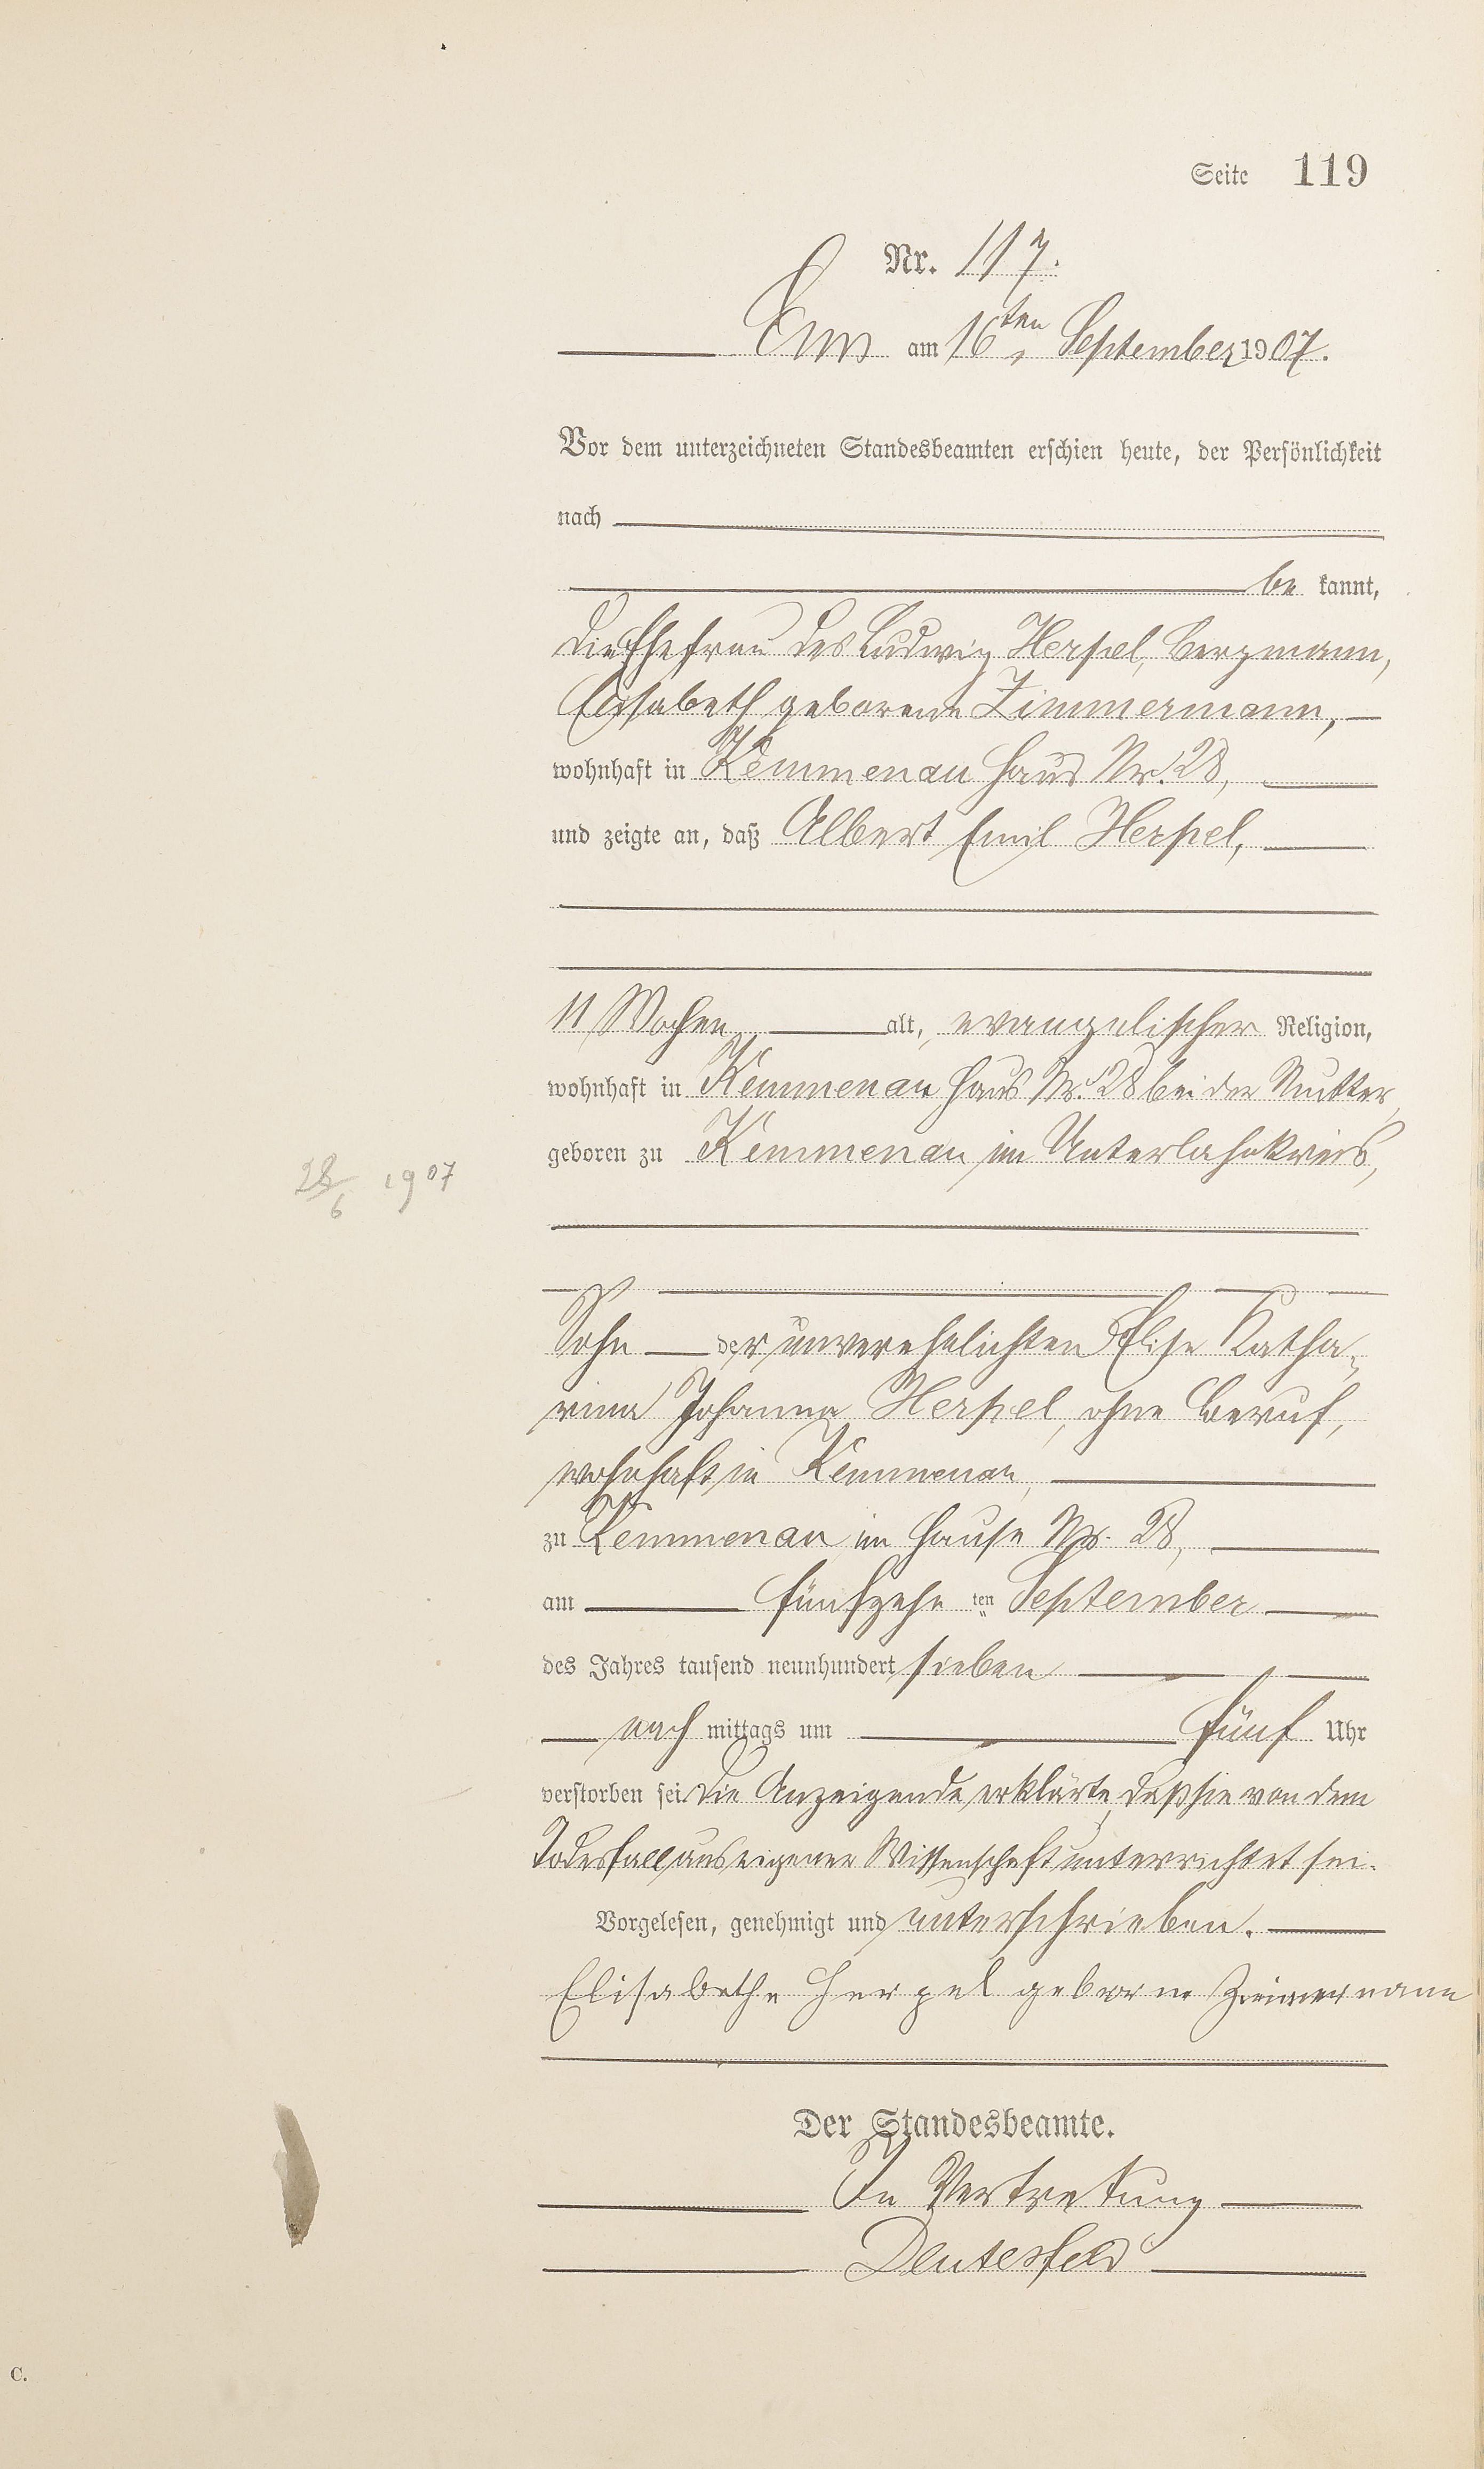 Seite 119
Nr. 117.
Ems am 16ten September 1907.
Vor dem unterzeichneten Standesbeamten erschien heute, der Persönlichkeit
nach
be kannt,
die Ehefrau des Ludwig Herpel, Bergmann,
Elisabeth geborene Zimmermann,
wohnhaft in Kemmenau Haus Nr. 28,
und zeigte an, daß Albert Emil Herpel,
11 Wochen alt, evangelischer Religion,
wohnhaft in Kemmenau Haus Nr. 28 bei der Mutter,
geboren zu Kemmenau im Unterlahnkreis,
28/6 1907
Sohn der unverehelichten Elise Katha-
rina Johanna Herpel, ohne Beruf,
wohnhaft in Kemmenau,
zu Kemmenau im Hause Nr. 28,
am fünfzehn ten September
des Jahres tausend neunhundert sieben
nach mittags um fünf Uhr
verstorben sei. Die Anzeigende erklärte, daß sie von dem
Todesfall aus eigener Wissenschaft unterrichtet sei.
Vorgelesen, genehmigt und unterschrieben.
Elisabethe Herpel geborne Zimmermann
Der Standesbeamte.
In Vertretung
C.